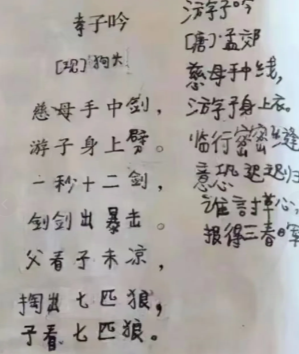 孝子吟
[现]狗大
慈母手中剑，
游子身上劈。
一秒十二剑，
剑剑出暴击。
父看子未凉，
掏出七匹狼，
子看七匹狼。
游子吟
[唐]孟郊
慈母手中线，
游子身上衣。
临行密密缝
意恐迟迟归
谁言寸草心，
报得三春晖